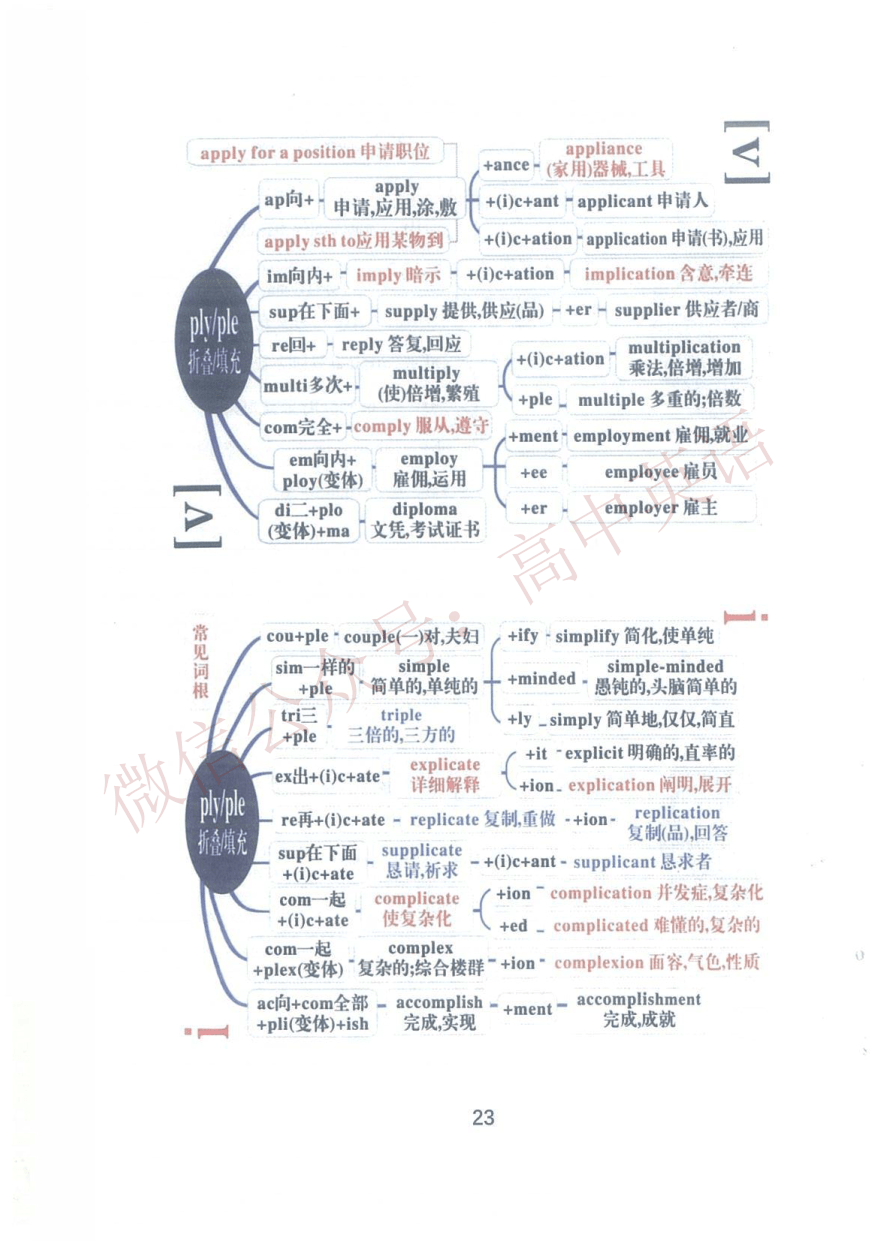 [v]
apply for a position 申请职位
ap向+
apply
申请,应用,涂,敷
apply sth to应用某物到
+ance
appliance
(家用)器械,工具
+(i)c+ant
applicant 申请人
+(i)c+ation
application 申请(书),应用
ply/ple
折叠/填充
im向内+
imply 暗示
+(i)c+ation
implication 含意,牵连
sup在下面+
supply 提供,供应(品)
+er
supplier 供应者/商
re回+
reply 答复,回应
multi多次+
multiply
(使)倍增,繁殖
+(i)c+ation
multiplication
乘法,倍增,增加
+ple
multiple 多重的;倍数
com完全+
comply 服从,遵守
em向内+
ploy(变体)
employ
雇佣,运用
+ment
employment 雇佣,就业
+ee
employee 雇员
+er
employer 雇主
di二+plo
(变体)+ma
diploma
文凭,考试证书
[v]
i
常见词根
cou+ple
couple(一)对,夫妇
sim一样的
+ple
simple
简单的,单纯的
+ify
simplify 简化,使单纯
+minded
simple-minded
愚钝的,头脑简单的
+ly
simply 简单地,仅仅,简直
tri三
+ple
triple
三倍的,三方的
ply/ple
折叠/填充
ex出+(i)c+ate
explicate
详细解释
+it
explicit 明确的,直率的
+ion
explication 阐明,展开
re再+(i)c+ate
replicate 复制,重做
+ion
replication
复制(品),回答
sup在下面
+(i)c+ate
supplicate
恳请,祈求
+(i)c+ant
supplicant 恳求者
com一起
+(i)c+ate
complicate
使复杂化
+ion
complication 并发症,复杂化
+ed
complicated 难懂的,复杂的
com一起
+plex(变体)
complex
复杂的;综合楼群
+ion
complexion 面容,气色,性质
ac向+com全部
+pli(变体)+ish
accomplish
完成,实现
+ment
accomplishment
完成,成就
i
微信公众号：高中英语
23